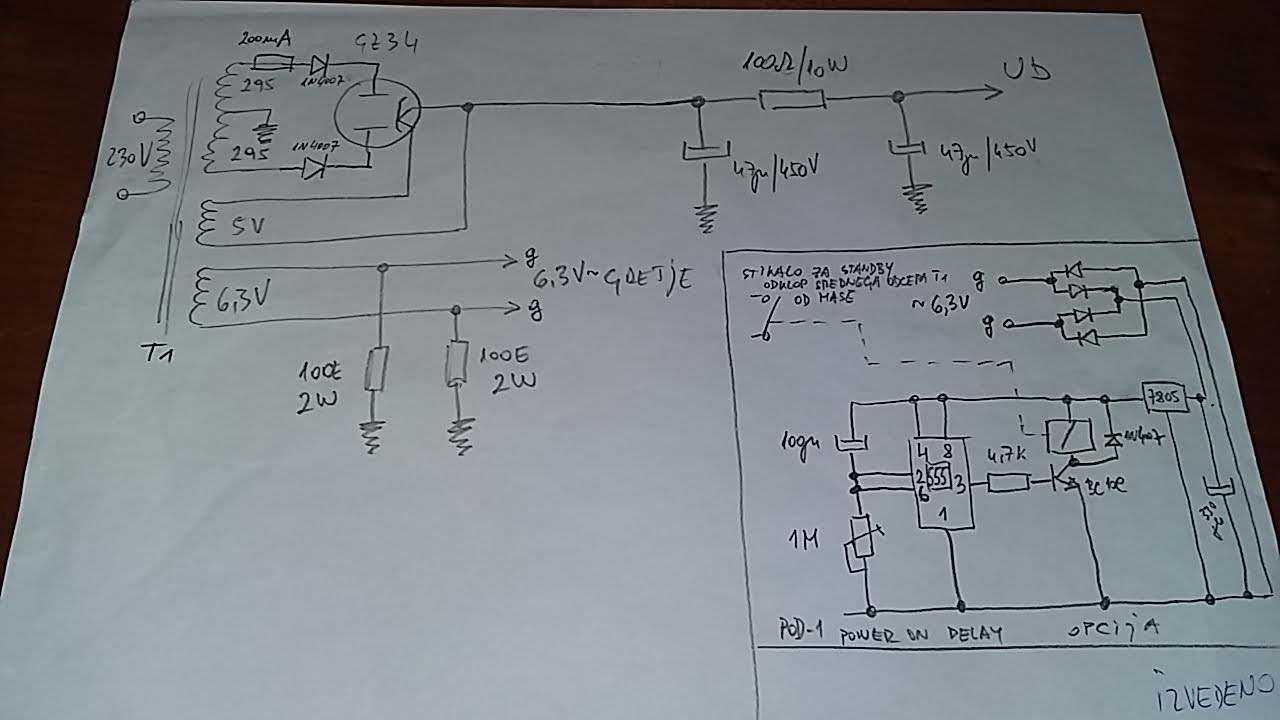 200mA
GZ34
1N4007
295
295
1N4007
230V
5V
6,3V
T1
g
6,3V~ GRETJE
g
100E
2W
100E
2W
100Ω/10W
Ub
47µ/450V
47µ/450V
STIKALO ZA STANDBY
ODKLOP SREDNEGA ODCEPA T1
OD MASE
g
~6,3V
g
7805
100µ
4 8
2 555 3
6
1
4,7K
1N4007
1M
POD-1 POWER ON DELAY OPCIJA
IZVEDENO